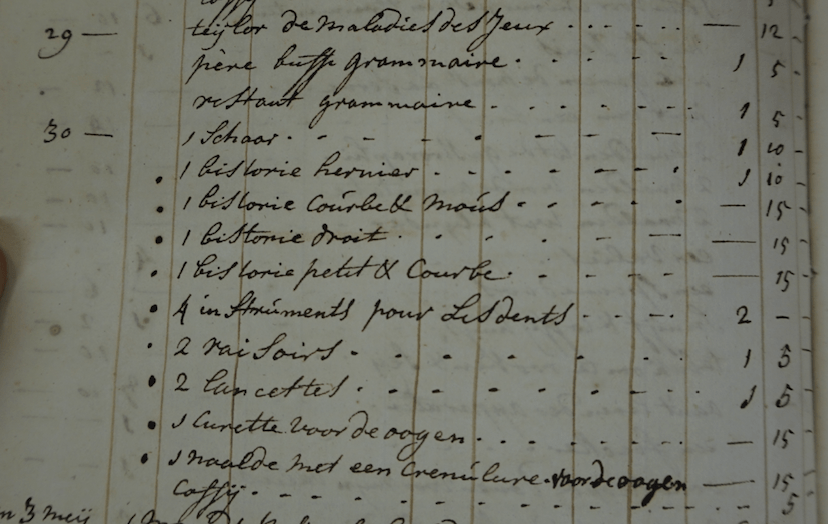 coffij
29 — teijlor de maladies des Jeux - - - - — 12 -
père buffe grammaire - - - - 1 5 -
restaut grammaire - - - - - 1 5 -
30 — 1 Schaar - - - - - — — 1 10 -
1 bistorie hernier - - - - - 1 10 -
1 bistorie Coúrbe & moús - - - - — 15 -
1 bistorie droit - - - - — — 15 -
1 bistorie petit & Courbe - - - - — 15
4 in Strúments pour Les dents - - - - 2 —
2 raisoirs - - - - - - 1 5
2 lancettes - - - - - - 1 5
1 Curette voor de oogen - - - - — 15
1 naalde met een Crenúlure voor de oogen — 15
Coffij - - - - - - - - 5
3 meij